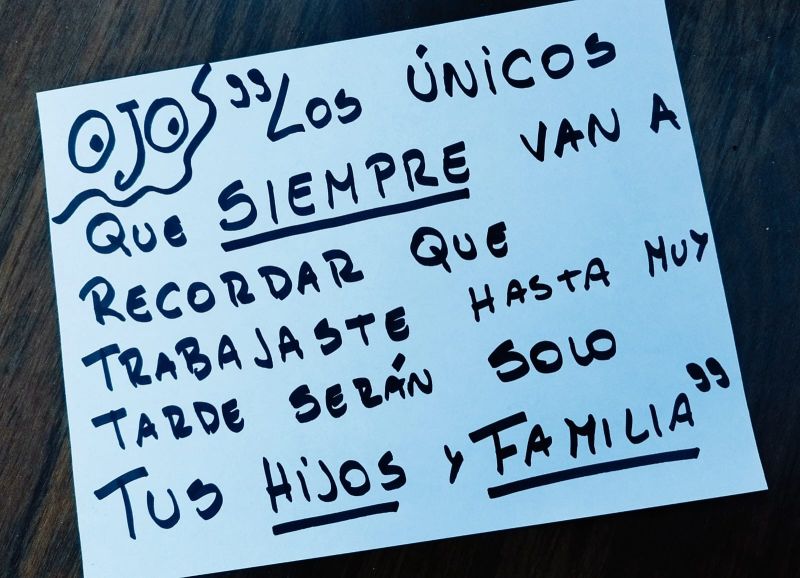 OJO "Los ÚNICOS
QUE SIEMPRE VAN A
RECORDAR QUE
TRABAJASTE HASTA MUY
TARDE SERÁN SOLO
TUS HIJOS Y FAMILIA"